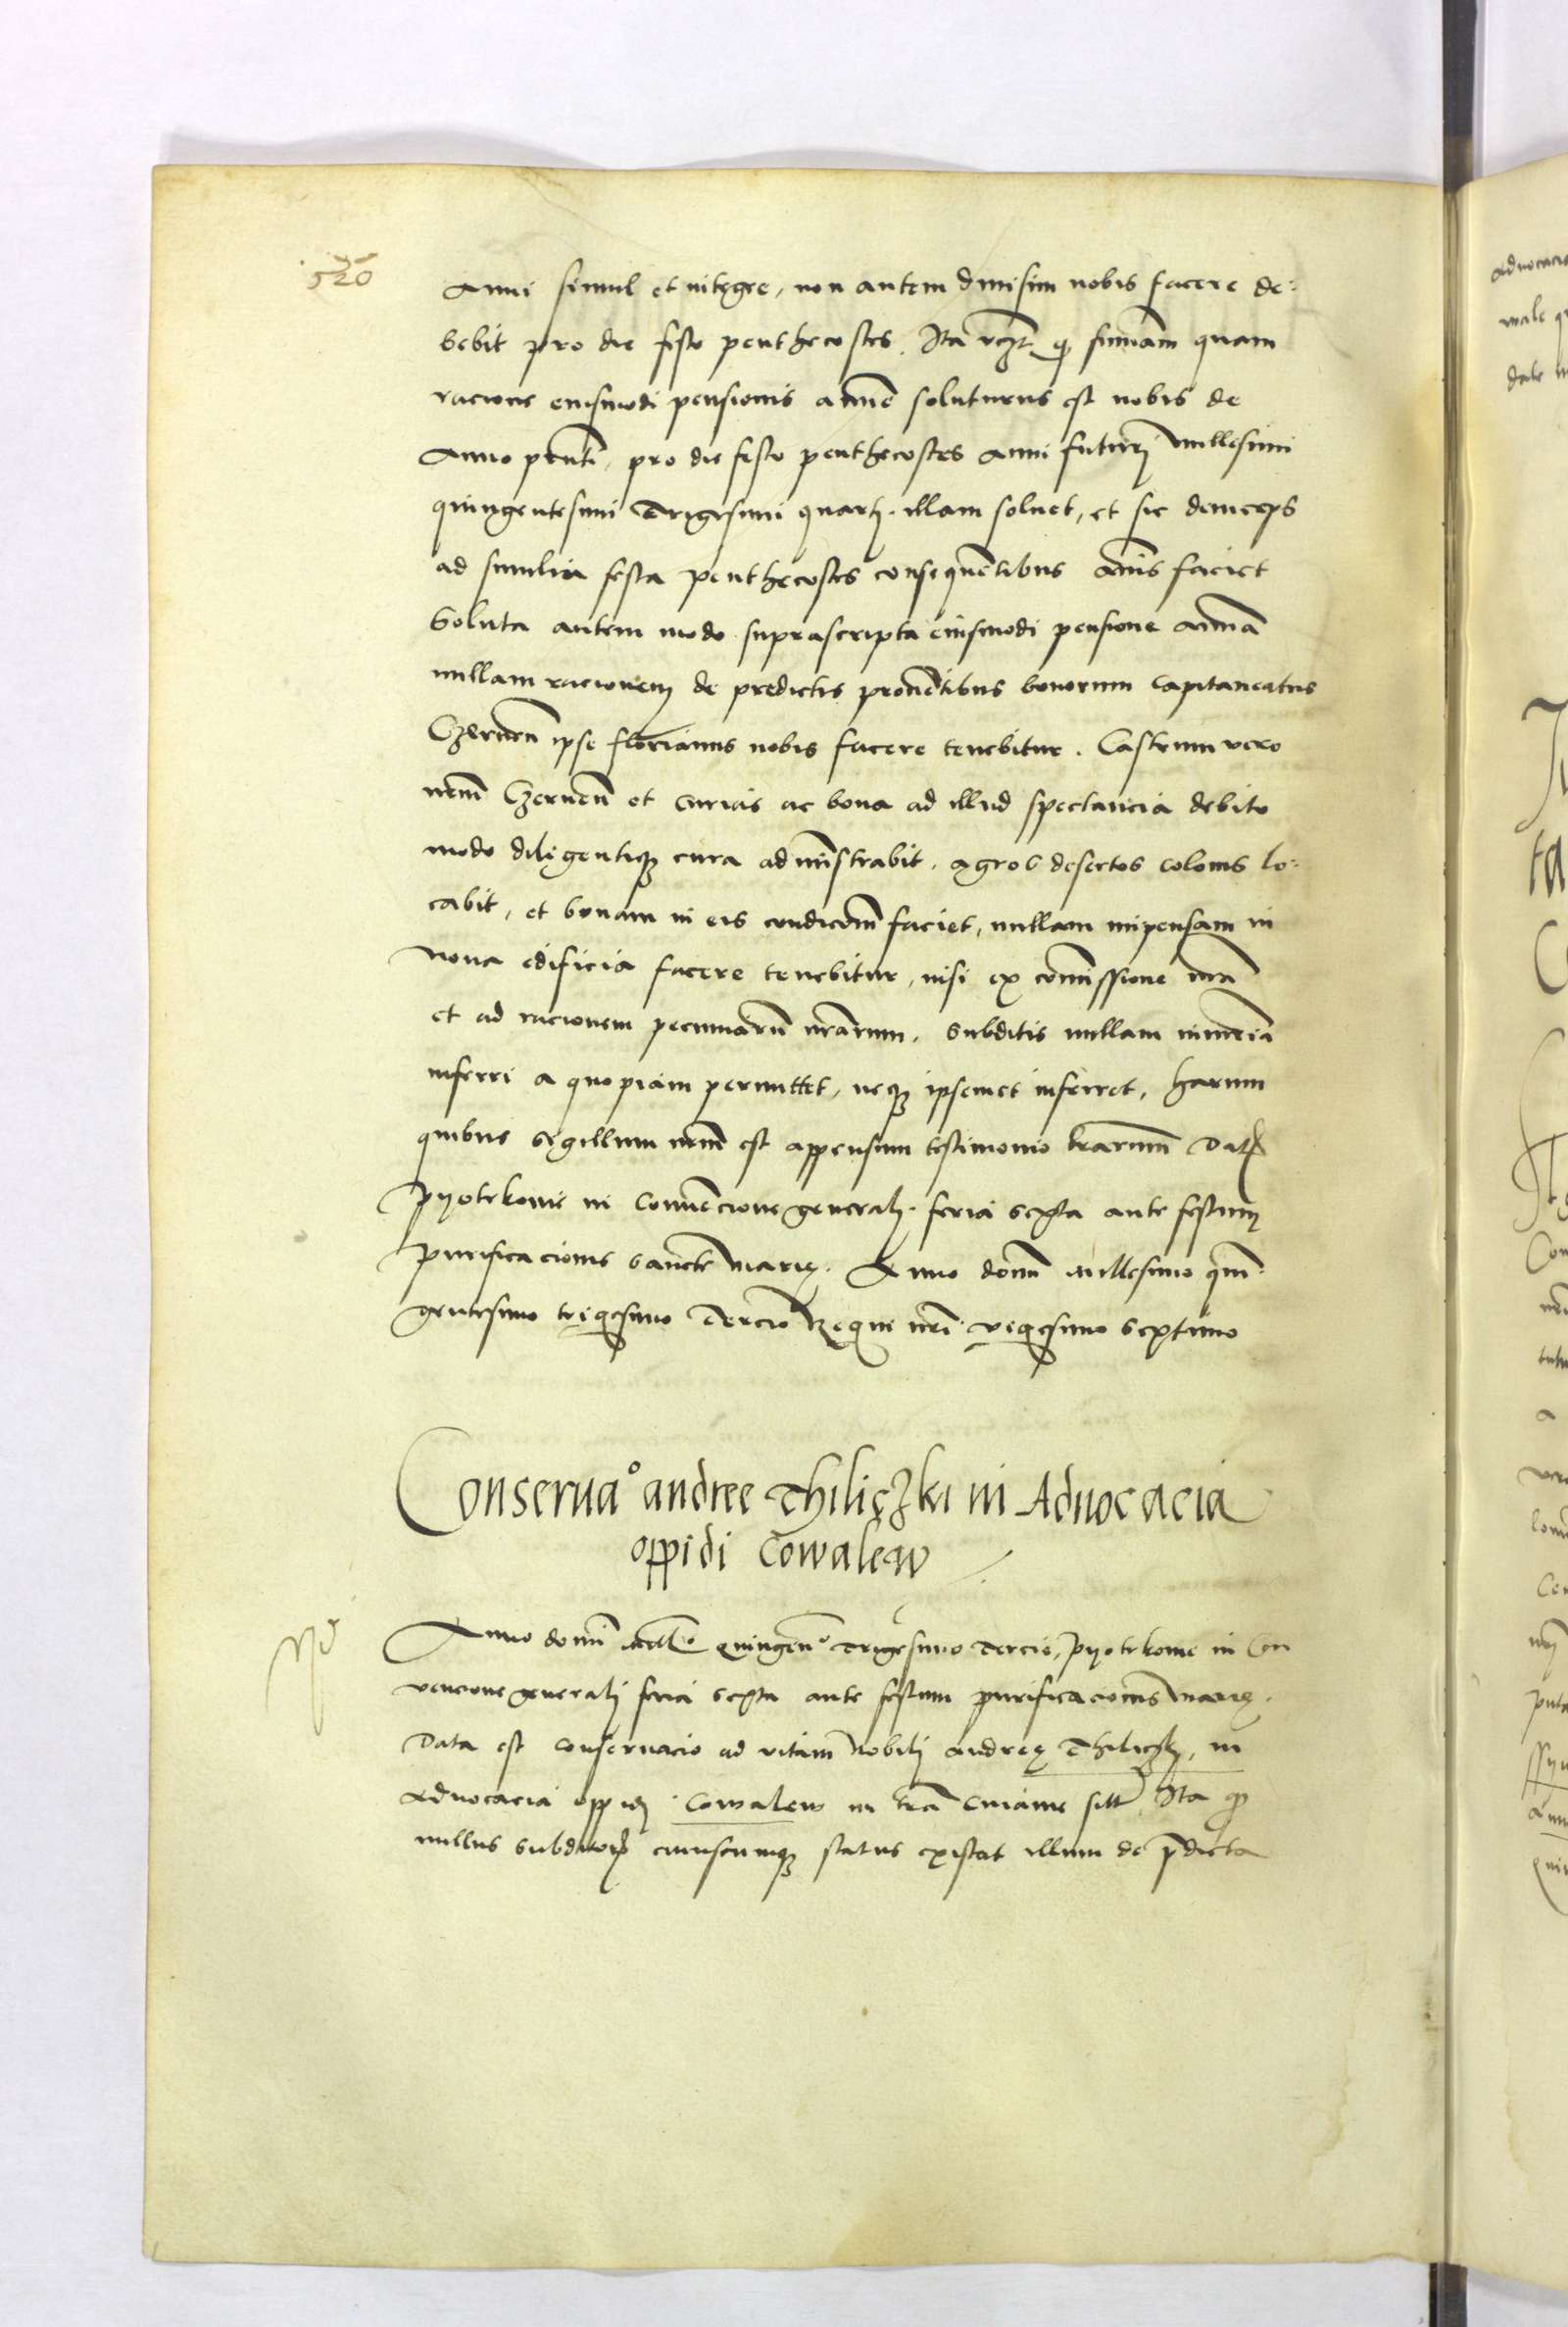 520
Anni simul et integre, non autem diuisim nobis facere de:
bebit pro die festo penthecostes. Ita vczt. qp summam quam
racione eiusmodi pensionis annue soluturus est nobis de
Anno pnti, pro die festo penthecostes anni futurj millesimi
quingentesimi Trigesimi quartj. illam soluet, et sic deinceps
ad similia festa penthecostes consequẽtibus annis faciet
Soluta autem modo suprascripta eiusmodi pensione annua
nullam racionem de predictis prouẽtibus bonorum capitaneatus
Czernen ipse florianus nobis facere tenebitur. Castrum vero
nrm̃ Czernen et curias ac bona ad illud spectancia debito
modo diligentiqз cura administrabit. agros desertos colonis lo:
cabit, et bonam in eis condicõm faciet, nullam impensam in
noua edificia facere tenebitur, nisi ex com̃issione nrã
et ad racionem pecuniarũ nrãrum. Subditis nullam iniuriã
inferri a quopiam permittet, neqз ipsemet inferret, harum
quibus Sigillum nrm̃ est appensum testimonio lrãrum Dat
Pyotrkouie in Conuẽcione generalj. feria sexta ante festum
purificacionis sancte marię. Anno domi millesimo quin
gentesimo trigesimo Tercio Regni nrĩ vigesimo septimo
Conserua° andree Thiliczki in Aduocacia
oppidi Cowalew
Anno domi mill° Quingen° Trigesimo Tercio, Pyotrkouie in Con
uencione generalj feria sexta ante festum purificacionis marię.
Data est conseruacio ad vitam nobilj andreę Thiliczkj, in
aduocacia oppidj Cowalew in trã Cuiauie sitt Ita qp
nullus subditorũ cuiuscumqз status existat illum de p̃dicta